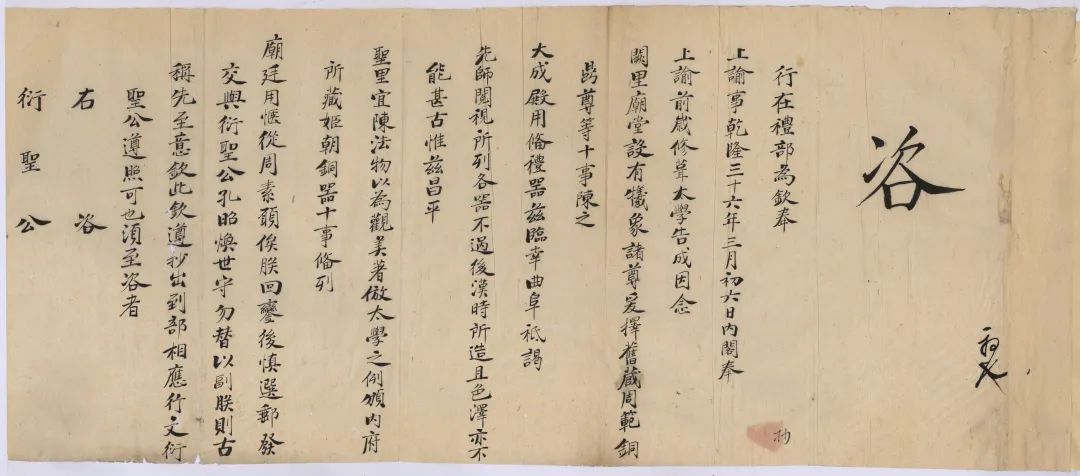 咨
行在禮部為欽奉
上諭事乾隆三十六年三月初六日內閣奉
上諭前歲修葺太學告成因念
闕里廟堂設有犧象諸尊爰擇舊蔵周範銅
尊等十事陳之
大成殿用俻禮器茲臨幸曲阜祗謁
先師閱視所列各器不過後漢時所造且色澤亦不
能甚古惟茲昌平
聖里宜陳法物以為觀美著倣太學之例頒內府
所藏姬朝銅器十事俻列
廟廷用愜從周素願俟朕回鑾後慎選郵發
交與衍聖公孔昭煥世守勿替以副朕則古
稱先至意欽此欽遵抄出到部相應行文衍
聖公遵照可也須至咨者
右咨
衍聖公
抄